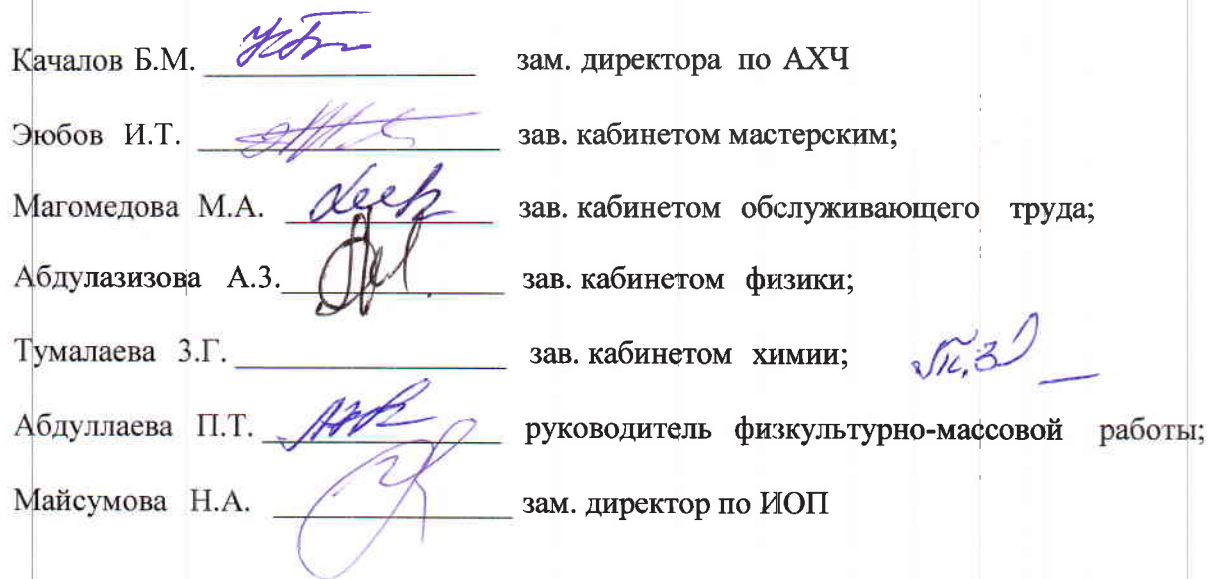 Качалов Б.М. зам. директора по АХЧ
Эюбов И.Т. зав. кабинетом мастерским;
Магомедова М.А. зав. кабинетом обслуживающего труда;
Абдулазизова А.З. зав. кабинетом физики;
Тумалаева З.Г. зав. кабинетом химии;
Абдуллаева П.Т. руководитель физкультурно-массовой работы;
Майсумова Н.А. зам. директор по ИОП